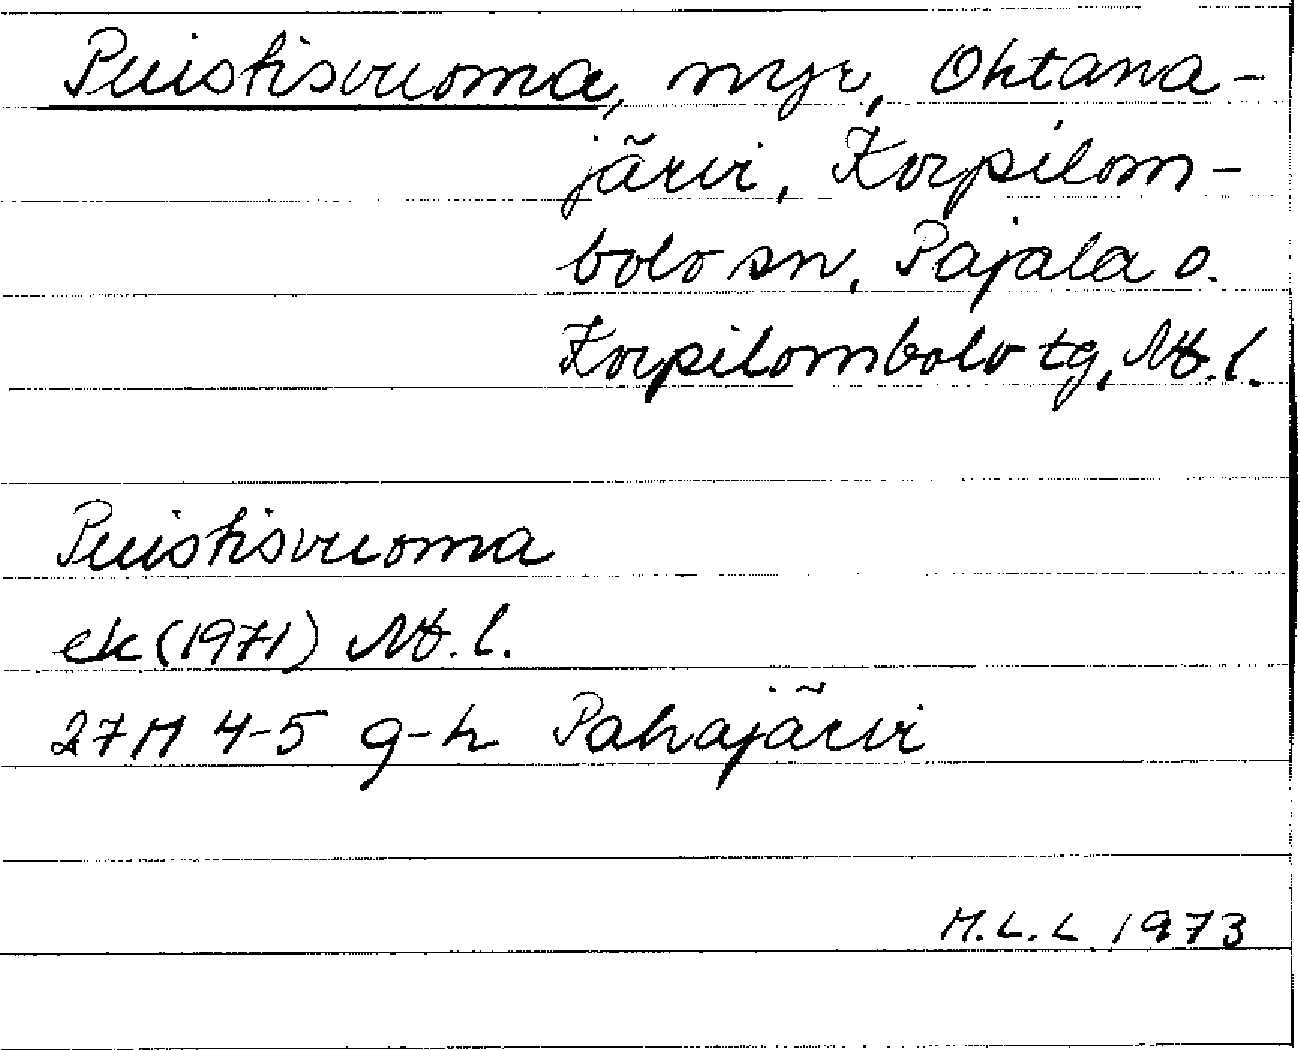 Puistisvuoma, myr, Ohtana-
järvi, Korpilom-
bolo sn, Pajala o.
Korpilombolo tg, Nb.l.
Puistisvuoma
ek (1971) Nb.l.
27M 4-5 g-h Pahajärvi
M.L.L. 1973